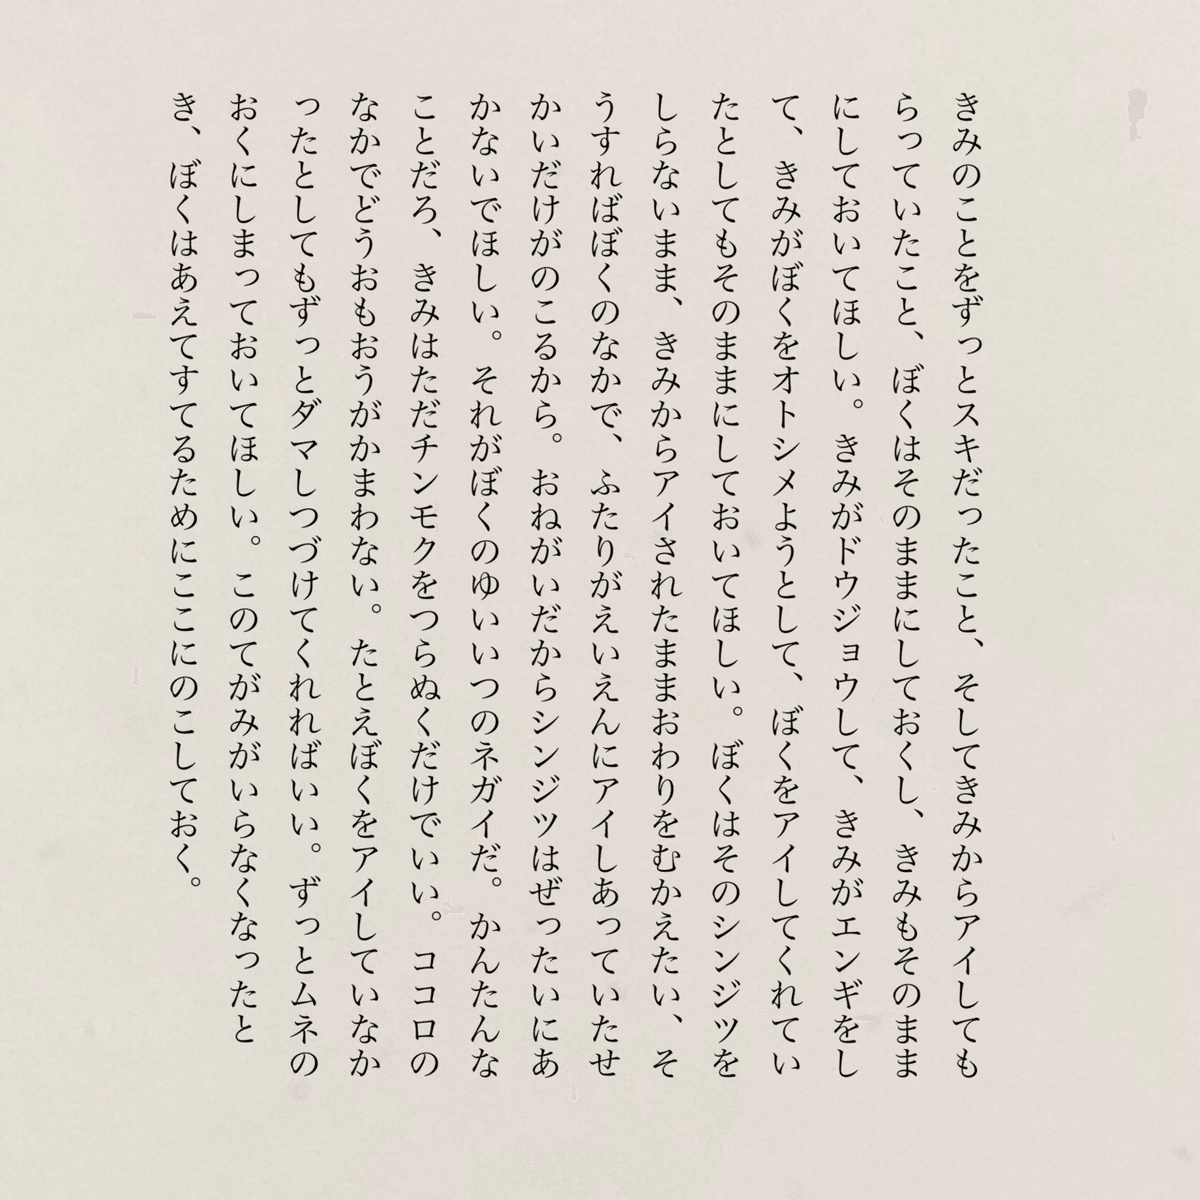 きみのことをずっとスキだったこと、そしてきみからアイしても
らっていたこと、ぼくはそのままにしておくし、きみもそのまま
にしておいてほしい。きみがドウジョウして、きみがエンギをし
て、きみがぼくをオトシメようとして、ぼくをアイしてくれてい
たとしてもそのままにしておいてほしい。ぼくはそのシンジツを
しらないまま、きみからアイされたままおわりをむかえたい、そ
うすればぼくのなかで、ふたりがえいえんにアイしあっていたせ
かいだけがのこるから。おねがいだからシンジツはぜったいにあ
かないでほしい。それがぼくのゆいいつのネガイだ。かんたんな
ことだろ、きみはただチンモクをつらぬくだけでいい。ココロの
なかでどうおもおうがかまわない。たとえぼくをアイしていなか
ったとしてもずっとダマしつづけてくれればいい。ずっとムネの
おくにしまっておいてほしい。このてがみがいらなくなったと
き、ぼくはあえてすてるためにここにのこしておく。